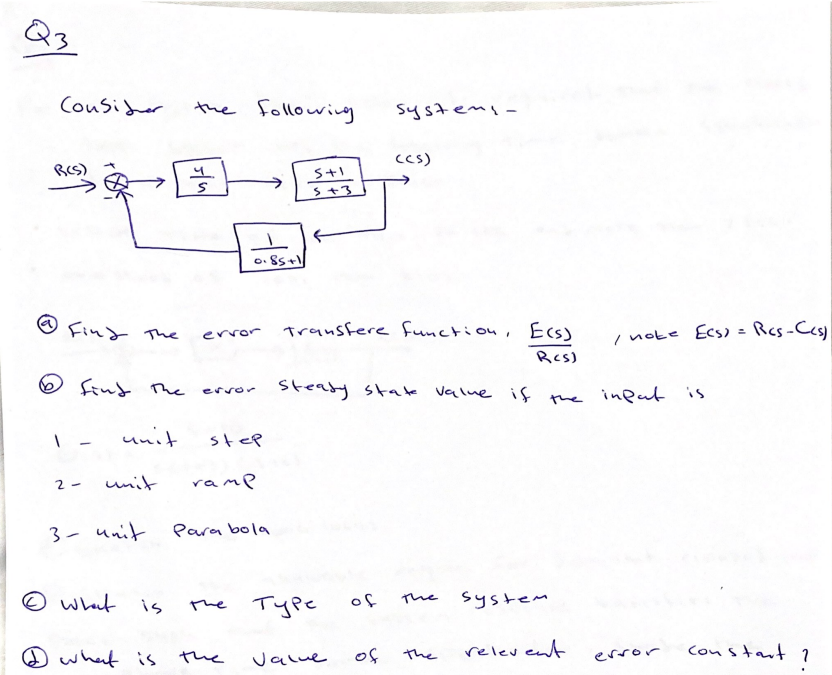 Q3
Consider the following systems-
R(S) + - 4/5 S+1/S+3 C(S)
1/0.8S+1
ⓐ Find the error transfere function, E(S)/R(S) , note E(S) = R(S - C(S)
ⓑ find the error steady state value if the input is
1 - unit step
2 - unit ramp
3 - unit Parabola
ⓒ what is the Type of the system
ⓓ what is the value of the relevent error constant ?